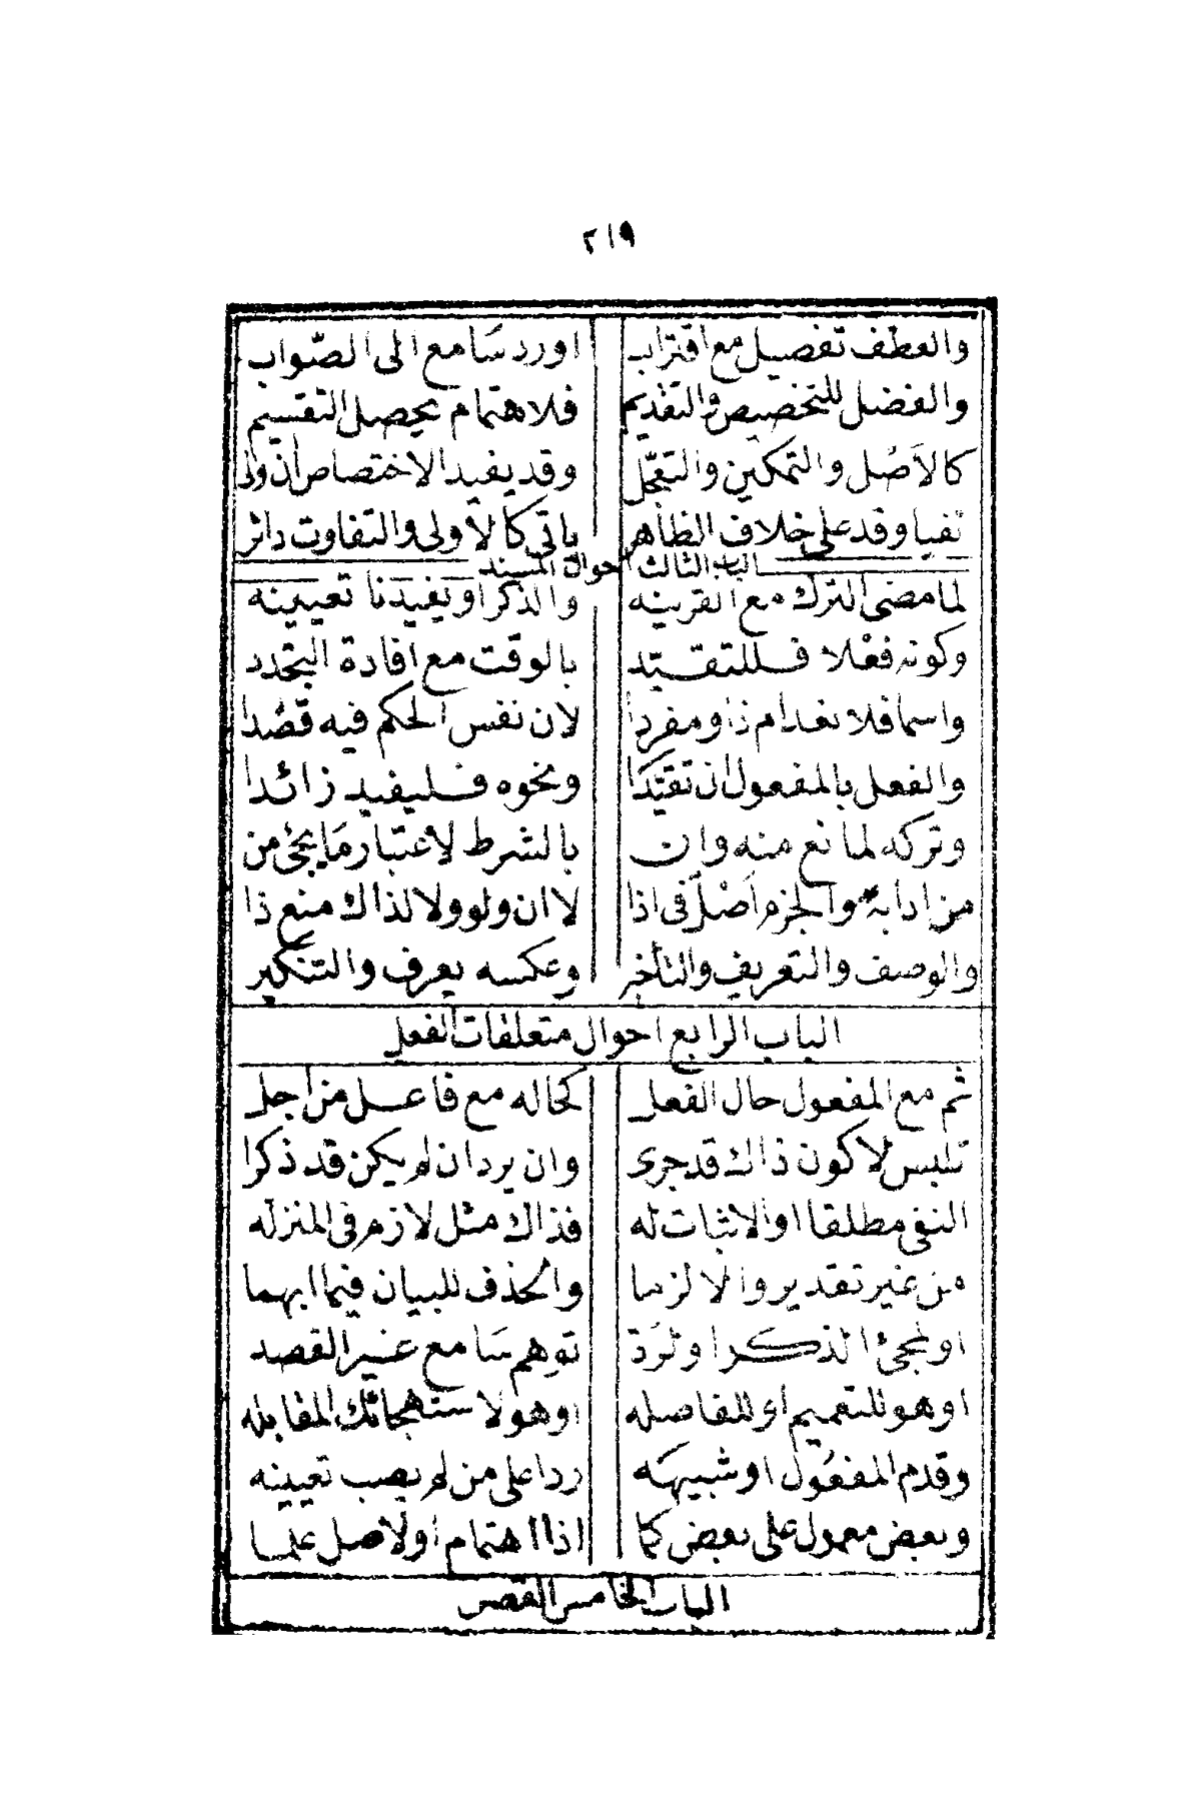 ٢١٩
والعطف تفصيل مع اقتراب اورد سَامع الى الصّواب
والفضل للتخصيص والتقديم فلاهتمام يحصل التقسيم
كالاَصْل والتمكين والتعجّل وقد يفيد الاختصاص ان ولى
نفيا وقد على خلاف الظاهر ياتى كالأولى والتفاوت دائر
الباب الثالث احوال المسند
لما مضى الترك مع القرينه والذكر او يفيدنا تعيينه
وكونه فعْلا فللتقيّد بالوقت مع افادة التجدد
واسما فلانعدام ذا ومفردا لان نفس الحكم فيه قصْدا
والفعل بالمفعول ان تقيّدَا ونحوه فليفيد زائدا
وتركه لمانع منه وان بالشرط لاعتبار مَا يجئ من
من ادابه والجزم اَصْل فى اذا لا ان ولو ولا لذاك منع ذا
والوصف والتعريف والتأخير وعكسه يعرف والتنكير
الباب الرابع احوال متعلقات الفعل
ثم مع المفعول حال الفعل كحاله مع فاعل من اجل
تلبس لا كون ذاك قد جرى وان يرد ان لم يكن قد ذكرا
النفى مطلقا او الاثبات له فذاك مثل لازم فى المنزله
من غير تقدير والا لزما والحذف للبيان فيما ابهما
او لمجئ الذكر او لرَدّ توهم سَامع غير القصد
او هو للتعميم او للفاصله او هو لاستهجانك المقابله
وقدم المفعُول او شبيهَه ردا على من لم يصب تعيينه
وبعض معمول على بعض كما اذا اهتمام او لاصل علما
الباب الخامس القصر